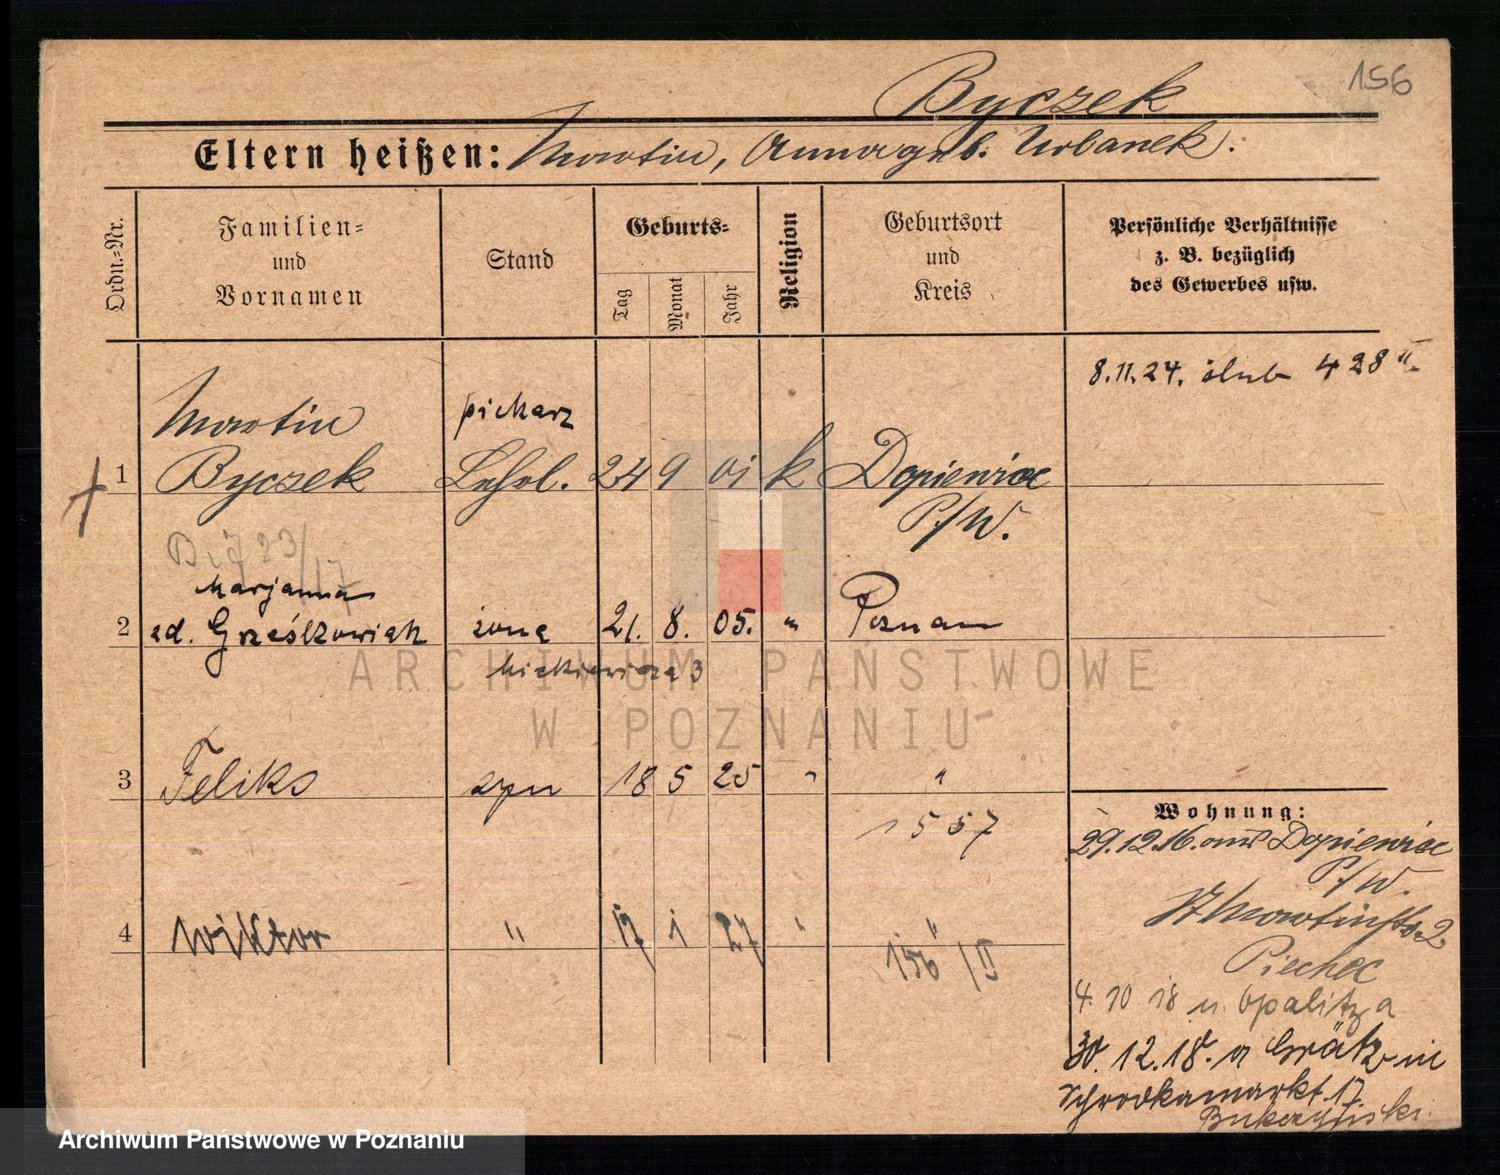 156
Byczek
Eltern heißen: Martin, Anna geb. Urbanek.
Ordn.-Nr.
Familien-
und
Vornamen
Stand
Geburts-
Tag
Monat
Jahr
Religion
Geburtsort
und
Kreis
Persönliche Verhältnisse
z. B. bezüglich
des Gewerbes usw.
8.11.24. ślub 428 II
Martin piekarz
1 Byczek Lehrl. 24 9 01 k Dopiewiec
P/W.
23/17
Marjanna
2 Grześkowiak żona 21. 8. 05. " Poznań
Mickiewicza 3
3 Feliks syn 18 5 25 " "
1557
4 Wiktor " 17 1 27 " "
156/II
Wohnung:
29.12.16. aus Dopiewiec
P/W.
St Martinstr. 2
Piechec
4 10 18 n. Opalitza
30.12.18. a Grätz in
Schrodkamarkt 17
ARCHIWUM PAŃSTWOWE
W POZNANIU
Archiwum Państwowe w Poznaniu